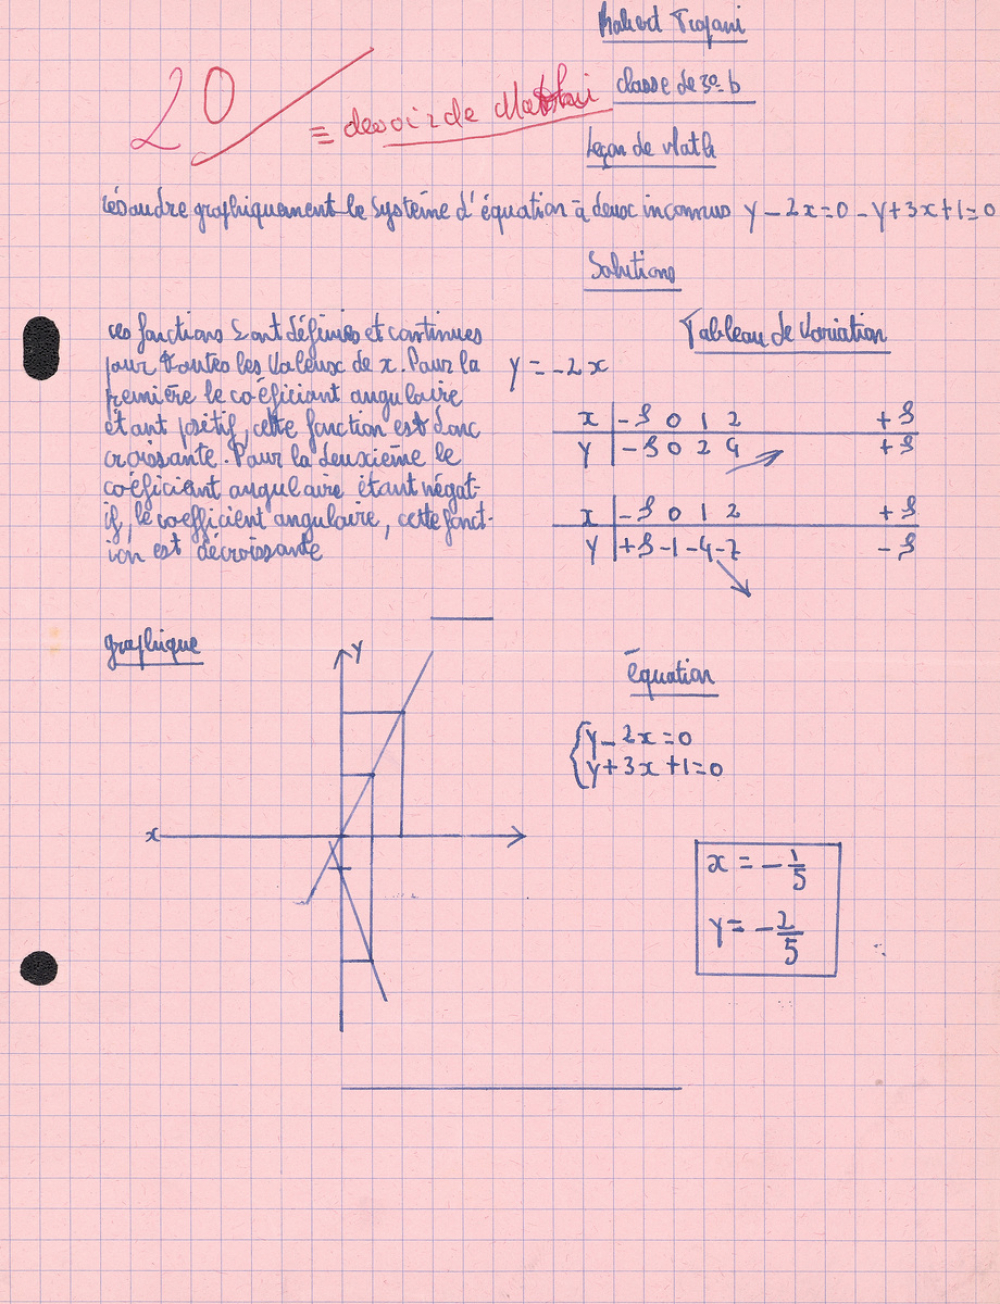 Robert Trojani
classe de 3e b
20
= devoir de
Leçon de Math
résoudre graphiquement le système d'équation à deux inconnus y - 2x = 0 - y + 3x + 1 = 0
Solutions
ces fonctions sont définies et continues
pour toutes les valeux de x. Pour la
première le coéficiant angulaire
étant positif, cette fonction est donc
croissante. Pour la deuxième le
coéficient angulaire étant négat-
if, le coefficient angulaire, cette fonct-
ion est décroissante
Tableau de Variation
y = -2x
x 0 1 2
y 0 2 4
x 0 1 2
y -1 -4 -7
graphique
y
x
équation
y - 2x = 0
y + 3x + 1 = 0
x = -1/5
y = -2/5